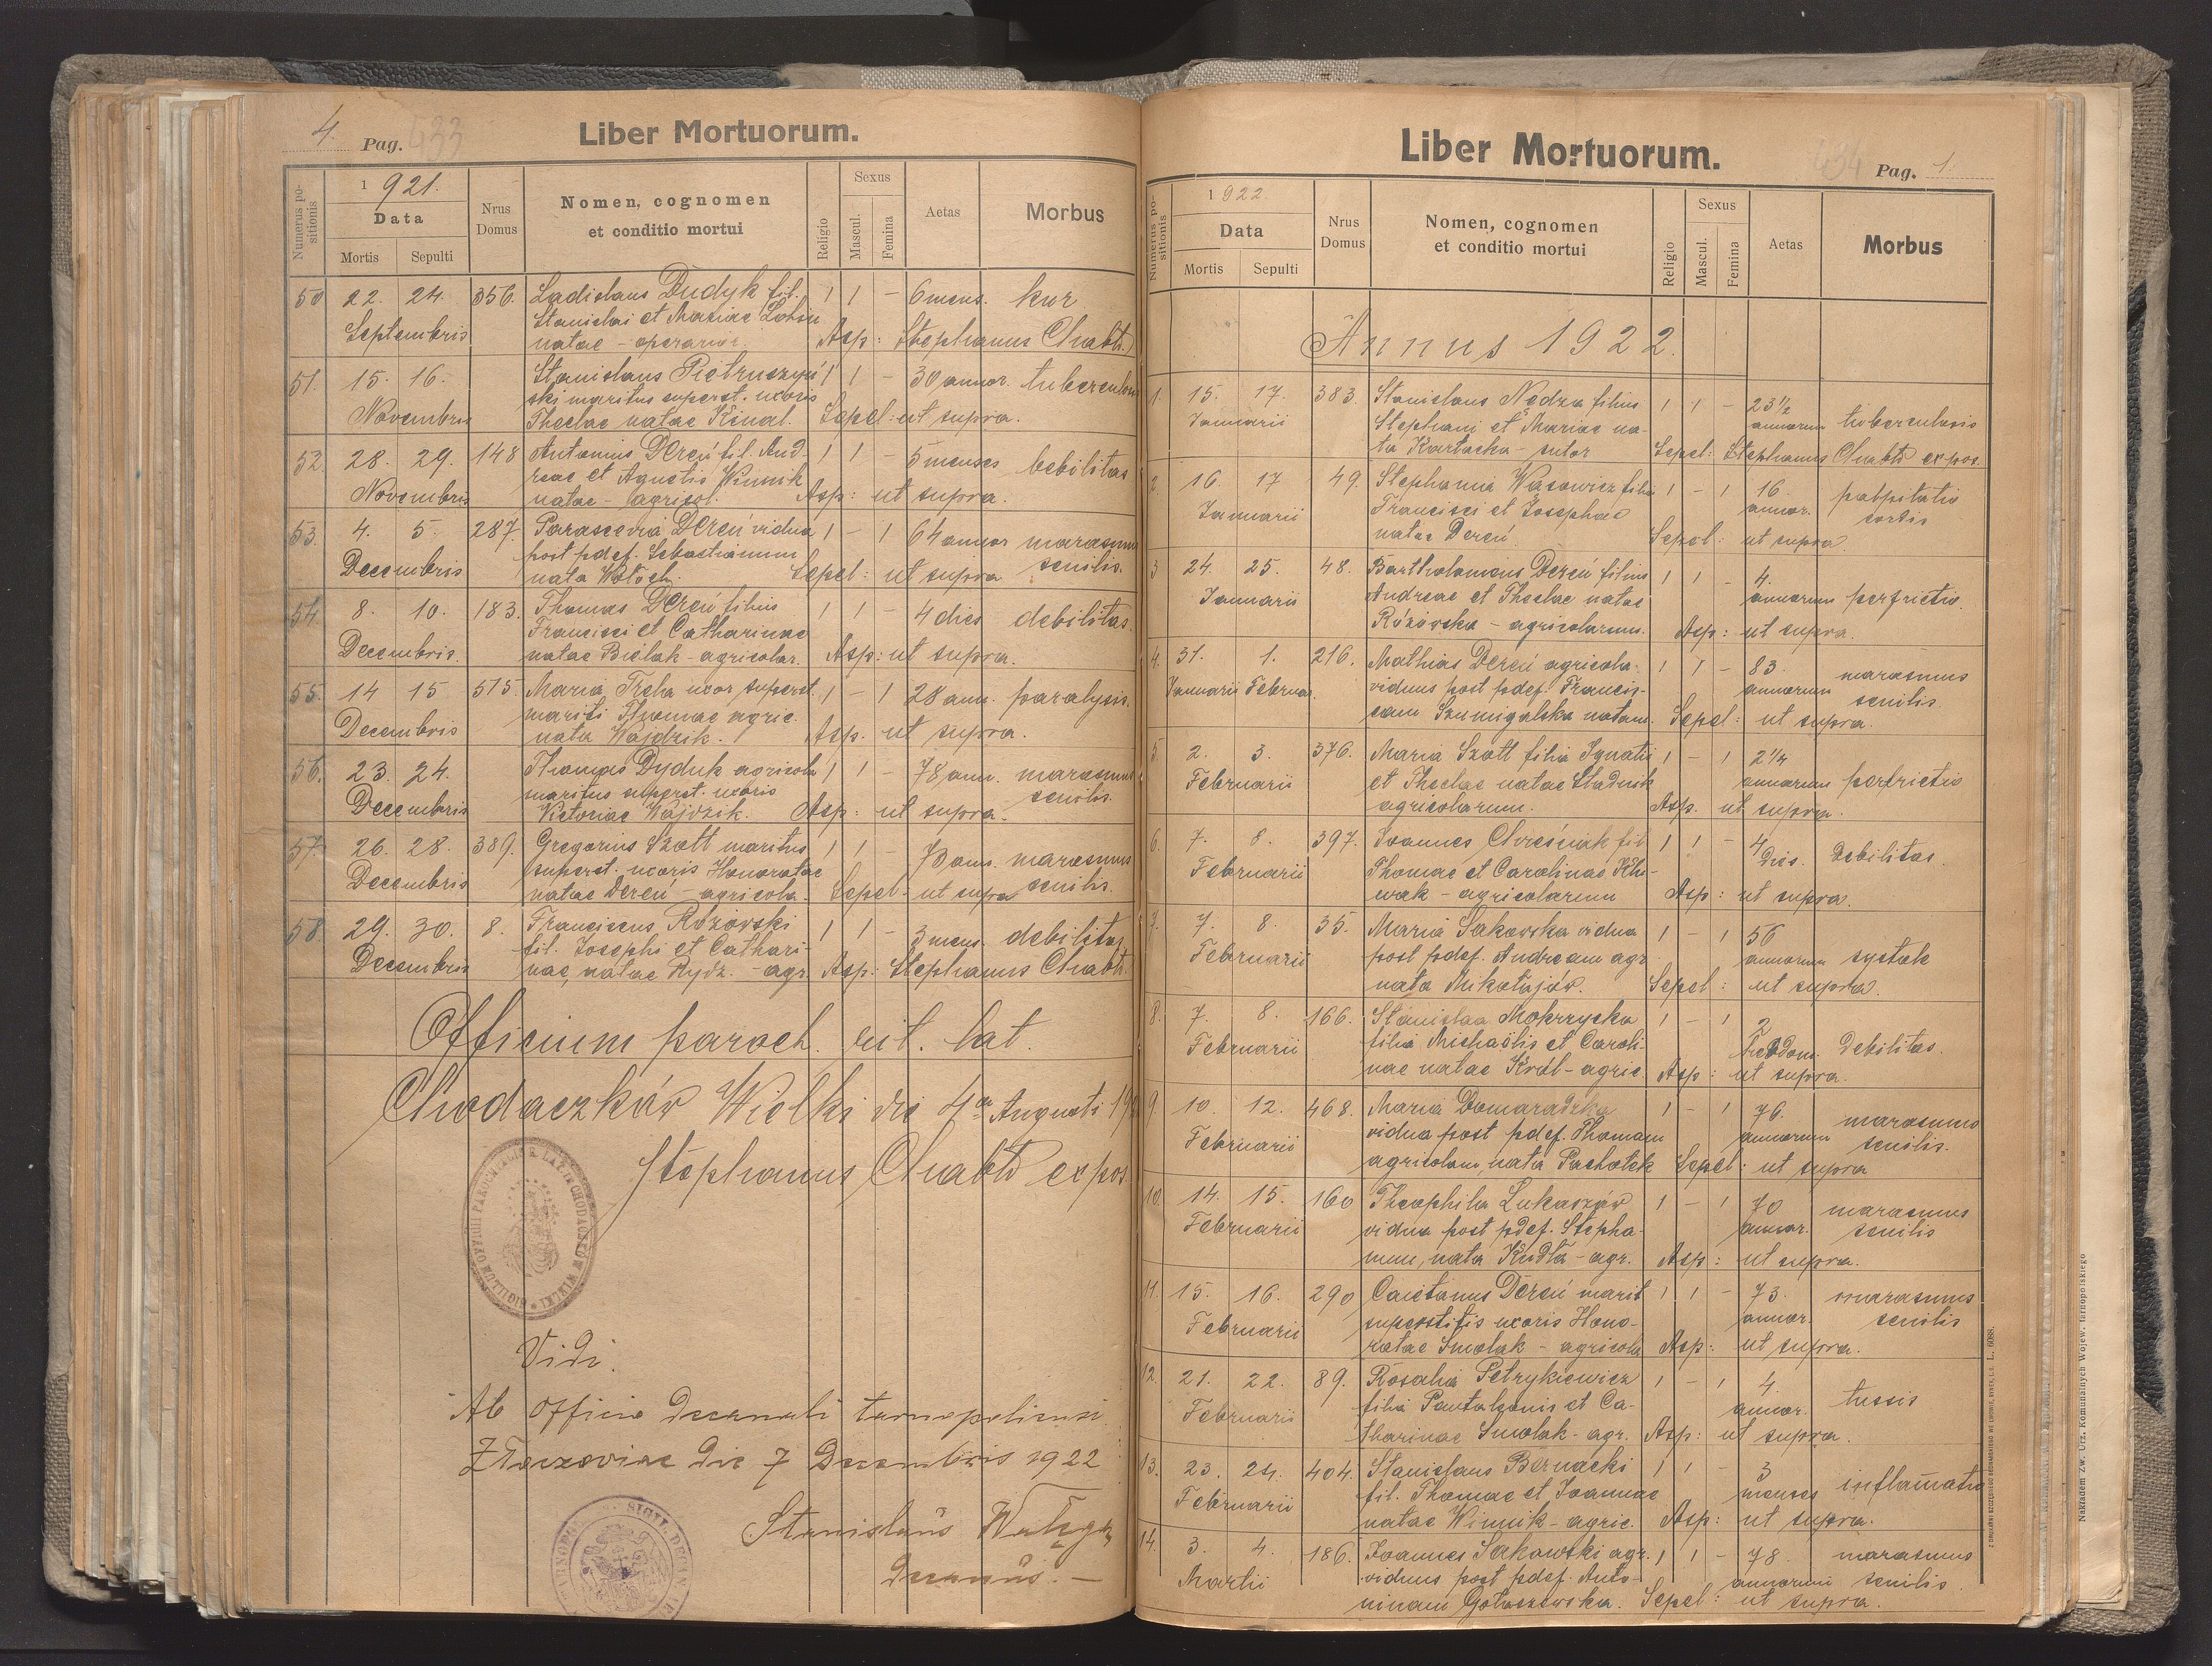 4. Pag. 433
Liber Mortuorum.
Numerus positionis
1921.
Data
Mortis Sepulti
Nrus Domus
Nomen, cognomen
et conditio mortui
Religio
Sexus
Mascul. Femina
Aetas
Morbus
50 22. 24. 356. Ladislaus Dudyk fil. 1 1 – 6 mens. kur
Septembris Stanislai et Mariae
natae – operarior. Asp: Stephanus Chabło
51. 15. 16. Stanislaus Pietruszyń 1 1 – 30 annor. tuberculosis
Novembris ski maritus superst. uxoris
Theclae natae Kinal. Sepel: ut supra.
52. 28. 29. 148 Antonius Dereń fil. And- 1 1 – 5 menses bebilitas
Novembris reae et Agnetis Winnik
natae – agricol. Asp: ut supra.
53. 4. 5. 287. Parascevia Dereń vidua 1 – 1 64 annor marasmus
Decembris post pdef. Sebastianum senilis.
nata Wołoch. Sepel: ut supra
54. 8. 10. 183. Thomas Dereń filius 1 1 – 4 dies debilitas.
Decembris. Francisci et Catharinae
natae Bielak – agricolar. Asp: ut supra.
55. 14 15 515. Maria Treha uxor superst. 1 – 1 28 ann. paralysis.
Decembris mariti Thomae agric.
nata Wajdzik. Asp. ut supra.
56. 23. 24. Thomas Dyduk agricola 1 1 – 78 ann. marasmus
Decembris maritus superst. uxoris senilis.
Victoriae Wajdzik. Asp: ut supra.
57. 26. 28. 389. Gregorius Szott maritus 1 1 – 73 ann. marasmus
Decembris superst. uxoris Honoratae senilis.
natae Dereń – agricola. Sepel – ut supra
58. 29. 30. 8. Franciscus Rożowski 1 1 – 3 mens. debilitas
Decembris fil. Josephi et Cathari-
nae, natae Rydz. – agr. Asp: Stephanus Chabło.
Officium paroch. rit. lat.
Chodaczków Wielki die 4ta Augusti 192
Stephanus Chabło expos
SIGILLUM OFFICII PAROCHIALIS R. LAT. IN CHODACZKÓW WIELKI
Vidi.
Ab officio decanali tarnopoliensi
Złoczoviae die 7 Decembris 1922
Stanislaus
Decanus. –
SIGIL. DECAN
Liber Mortuorum.
434 Pag. 1.
Numerus positionis
1922.
Data
Mortis Sepulti
Nrus Domus
Nomen, cognomen
et conditio mortui
Religio
Sexus
Mascul. Femina
Aetas
Morbus
Annus 1922.
1. 15. 17. 383. Stanislaus Nędza filius 1 1 – 23½
Januarii Stephani et Mariae na- annorum tuberculosis
ta Kartacha – sutor Sepel: Stephanus Chabło expos.
2. 16. 17 49. Stephania Wąsowicz filia 1 – 1 16. palpitatio
Januarii Francisci et Josephae annor. cordis
natae Dereń. Sepel: ut supra.
3 24. 25. 48. Bartholomeus Dereń filius 1 1 – 4.
Januarii Andreae et Theclae natae annorum perfrictio.
Rózowska – agricolarum. Asp: ut supra.
4. 31. 1. 216. Mathias Dereń agricola 1 1 – 83. marasmus
Januarii Februa. viduus post pdef. Francis- annorum senilis.
cam Szumigalska natam. Sepel: ut supra.
5. 2. 3. 376. Maria Szott filia Ignatii 1 – 1 2¼
Februarii et Theclae natae Stadnik annorum perfrictio
agricolarum. Asp. ut supra.
6. 7. 8. 397. Joannes Chreśniak fil 1 1 – 4 Debilitas.
Februarii Thomae et Carolinae Kle- dies.
wak – agricolarum Asp: ut supra.
7. 7. 8. 35. Maria Sakowska vidua 1 – 1 56
Februarii post pdef. Andream agr. annorum systek
nata Mikołajów. Sepel: ut supra.
8. 7. 8. 166. Stanislaa Mokrzycka 1 – 1 2
Februarii filia Michaëlis et Caroli- Debilitas.
nae natae Król – agric. Asp: ut supra.
9. 10. 12. 468. Maria Domaradzka 1 – 1 76. marasmus
Februarii vidua post pdef. Thomam annorum senilis.
agricolam, nata Pachołek Sepel: ut supra
10. 14. 15. 160 Theophila Łukaszów 1 – 1 70 marasmus
Februarii vidua post pdef. Stepha- annor. senilis
num, nata Kudła – agr. Asp: ut supra.
11. 15. 16. 290 Caietanus Dereń marit 1 1 – 73. marasmus
Februarii superstitis uxoris Hono- annor. senilis
ratae Smolak – agricola Asp: ut supra.
12. 21. 22. 89. Rosalia Petrykiewicz 1 – 1 4.
Februarii filia Pantaleonis et Ca- annor. tussis
tharinae Smolak – agr. Asp: ut supra.
13. 23. 24. 404. Stanislaus Bernacki 1 1 – 3
Februarii fil. Thomae et Joannae menses inflamatio
natae Winnik – agric. Asp: ut supra.
14. 3. 4. 186. Joannes Sakowski agr. 1 1 – 78. marasmus
Martii viduus post pdef. Anto- annorum senilis.
ninam Gołaszewska. Sepel: ut supra.
Nakładem Zw. Urz. Komunalnych Wojew. tarnopolskiego